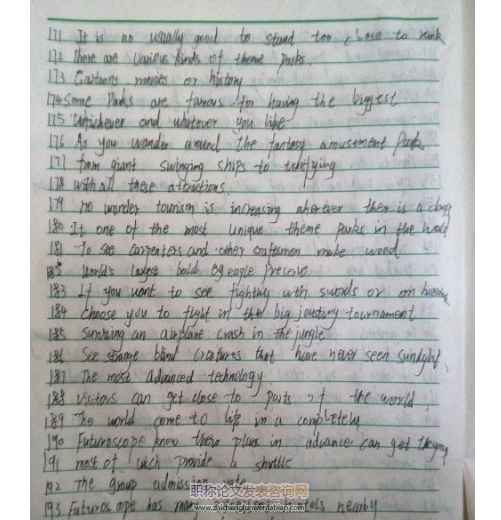 171 It is no usually good to stand too close to rank
172 There are various kinds of theme parks.
173 Cartoons movies or history
174 Some Parks are famous for having the biggest
175 Whichever and whatever you like
176 As you wander around the fantasy amusement Park.
177 from giant swinging ships to terrifying
178 with all these attractions.
179 no wonder tourism is increasing wherever ther is a
180 It one of the most unique theme parks in the
181 To see carpenters and other craftsmen make wood.
World's largest bald eagle Preserve
183 If you want to see fighting with swords or on
184 choose you to fight in the big jousting tournament
185 Surviving an airplane crash in the jungle
186 See strange blind creatures that have never seen sunlight
187 The most advanced technology
188 visitors can get close to parts of the world
189 The world come to life in a completely
190 Futuroscope know there plan in advance can get
191 most of wich provide a shuttle
192 The group admission rate
193 Futuroscope has many nearby
职称论文发表咨询网
www.zhichenglunwenfabiao.com